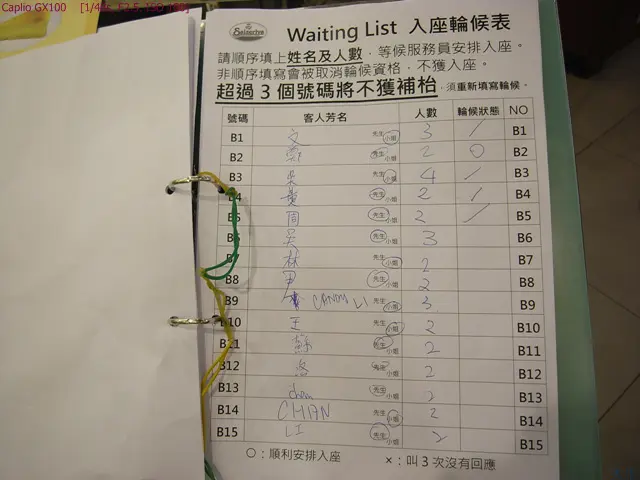 Caplio GX100 [1/45s, F2.5, ISO 100]
Waiting List 入座輪候表
請順序填上姓名及人數，等候服務員安排入座。
非順序填寫會被取消輪候資格，不獲入座。
超過 3 個號碼將不獲補枱，須重新填寫輪候。
號碼 客人芳名 人數 輪候狀態 NO
B1 文 先生 小姐 3 / B1
B2 鄭 先生 小姐 2 O B2
B3 吳 先生 小姐 4 / B3
B4 先生 小姐 2 / B4
B5 周 先生 小姐 2 / B5
B6 吴 先生 小姐 3 B6
B7 林 先生 小姐 2 B7
B8 先生 小姐 2 B8
B9 CANDY LI 先生 小姐 3 B9
B10 王 先生 小姐 2 B10
B11 蘇 先生 小姐 2 B11
B12 先生 小姐 2 B12
B13 先生 小姐 2 B13
B14 CHAN 先生 小姐 2 B14
B15 LI 先生 小姐 2 B15
○：順利安排入座 ×：叫 3 次沒有回應